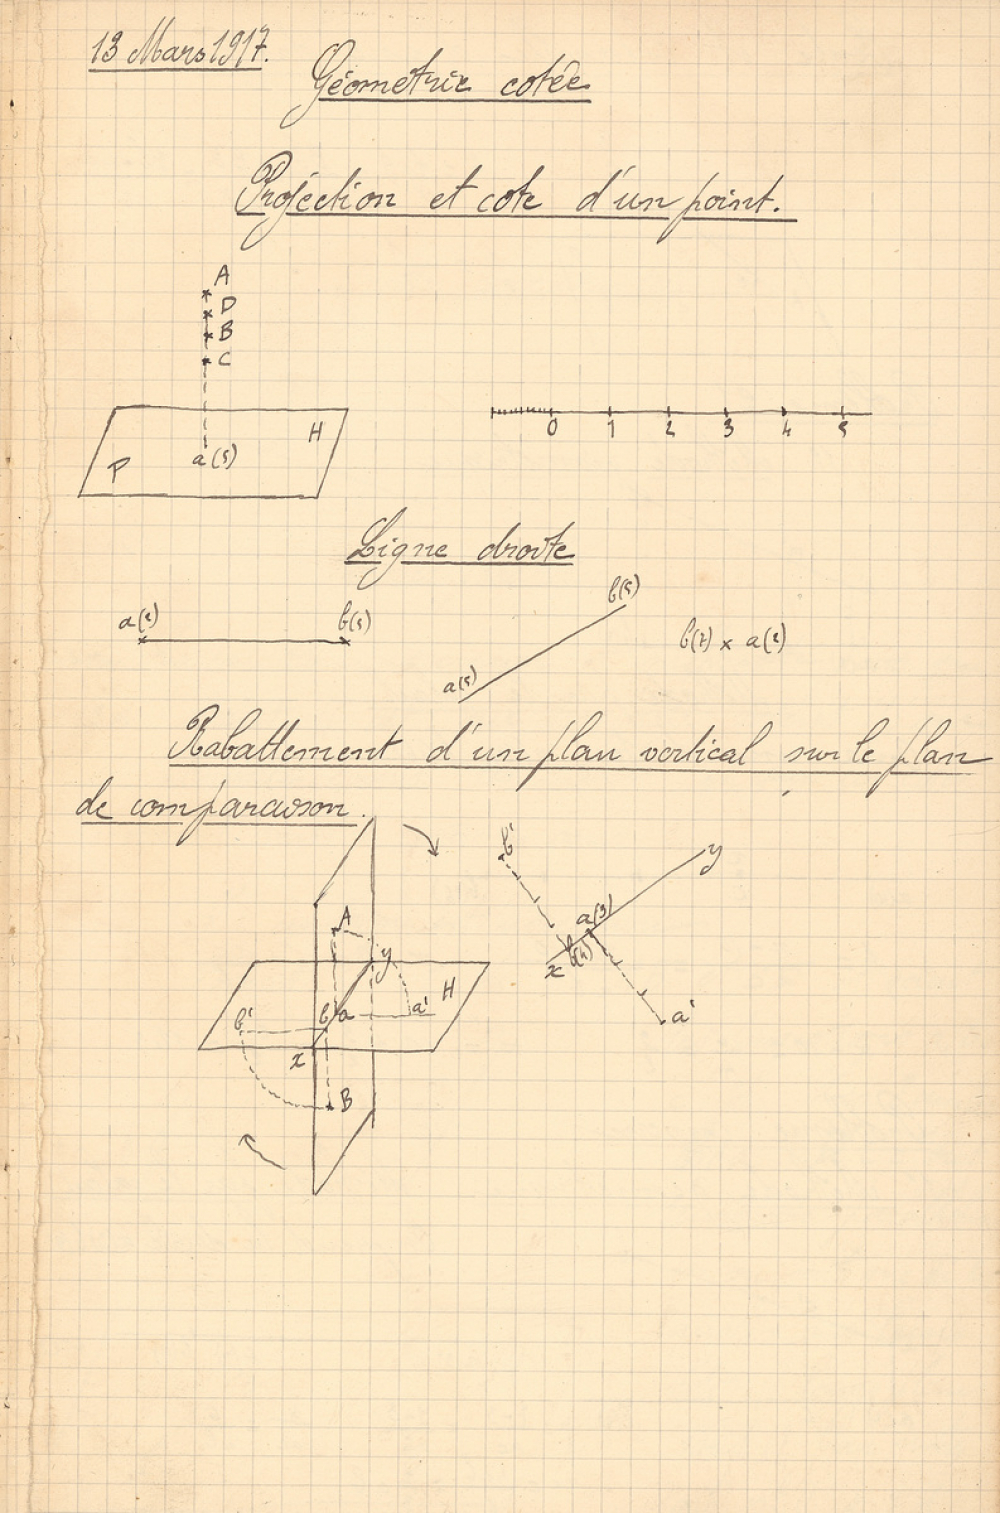 13 Mars 1917.
Géométrie cotée
Projéction et cote d'un point.
A
D
B
C
H
P
a(5)
0 1 2 3 4 5
Ligne droite
a(2) b(5)
a(5) b(5)
b(7) x a(2)
Rabattement d'un plan vertical sur le plan
de comparaison.
A
y
H
b' b a a'
x
B
b'
y
a(3)
x b(4)
a'